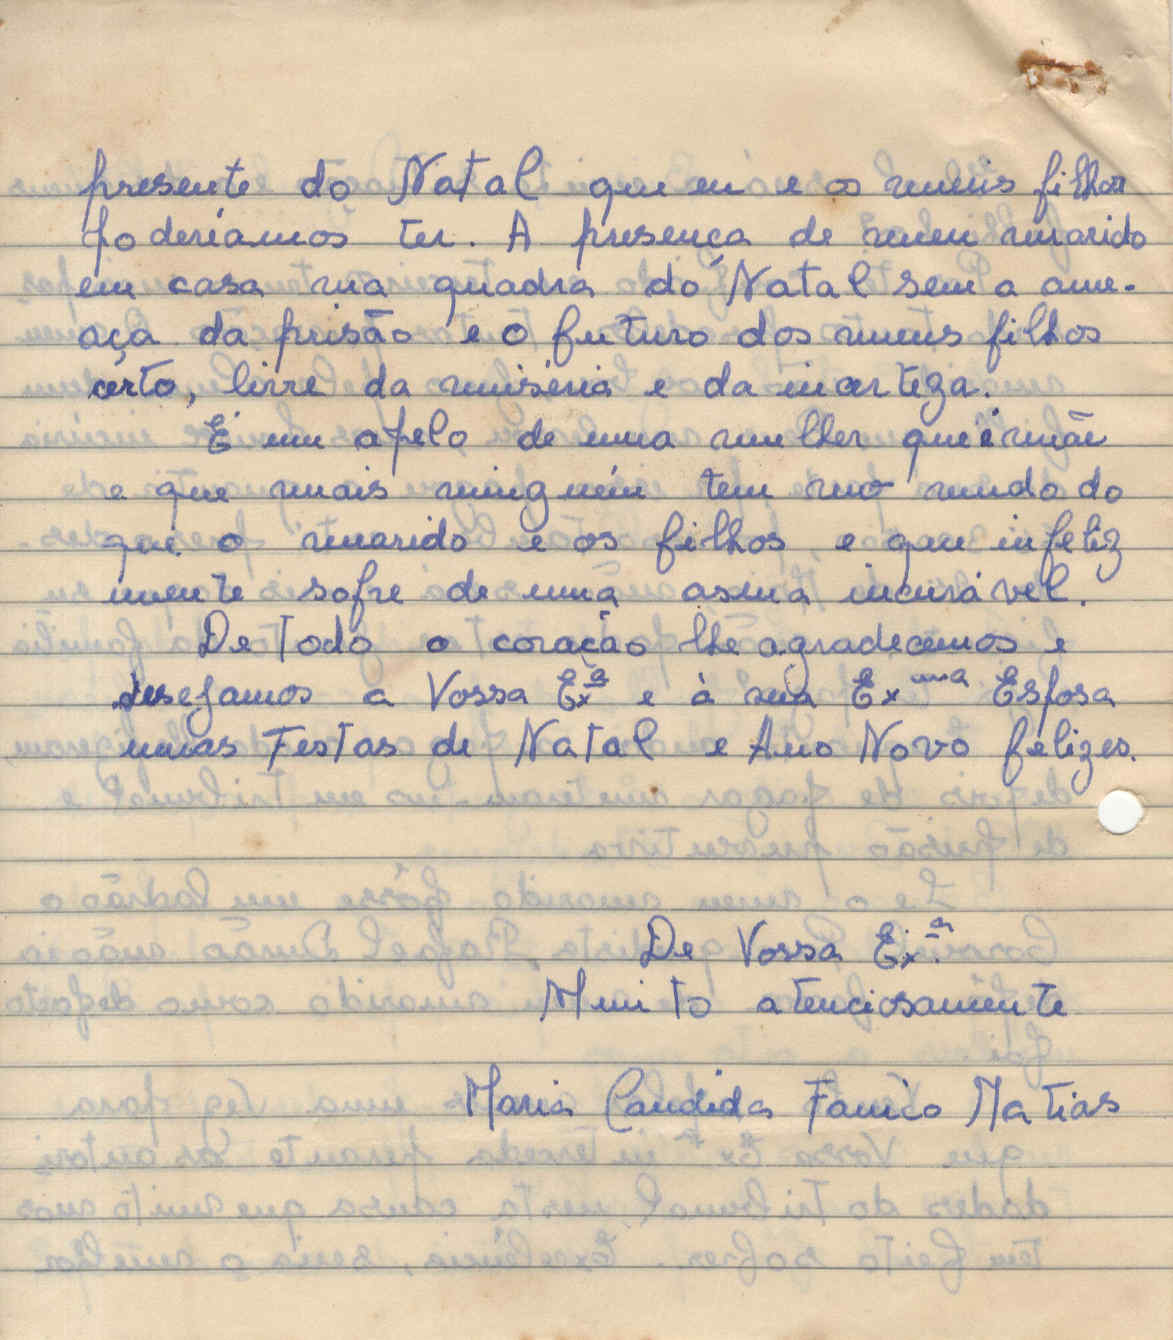 presente do Natal que eu e os meus filhos
poderíamos ter. A presença de meu marido
em casa na quadra do Natal sem a ame-
aça da prisão e o futuro dos meus filhos
certo, livre da miséria e da incerteza.
É um apelo de uma mulher que é mãe
e que mais ninguém tem no mundo do
que o marido e os filhos e que infeliz
mente sofre de uma asma incurável.
De todo o coração lhe agradecemos e
desejamos a Vossa Exª e à sua Exma Esposa
umas Festas de Natal e Ano Novo felizes.
De Vossa Exª.
Muito atenciosamente
Maria Candida Fanico Matias